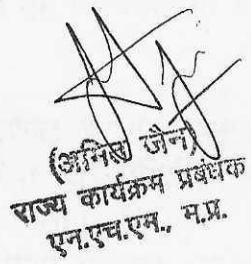 (अनिल जैन)
राज्य कार्यक्रम प्रबंधक
एन.एच.एम., म.प्र.